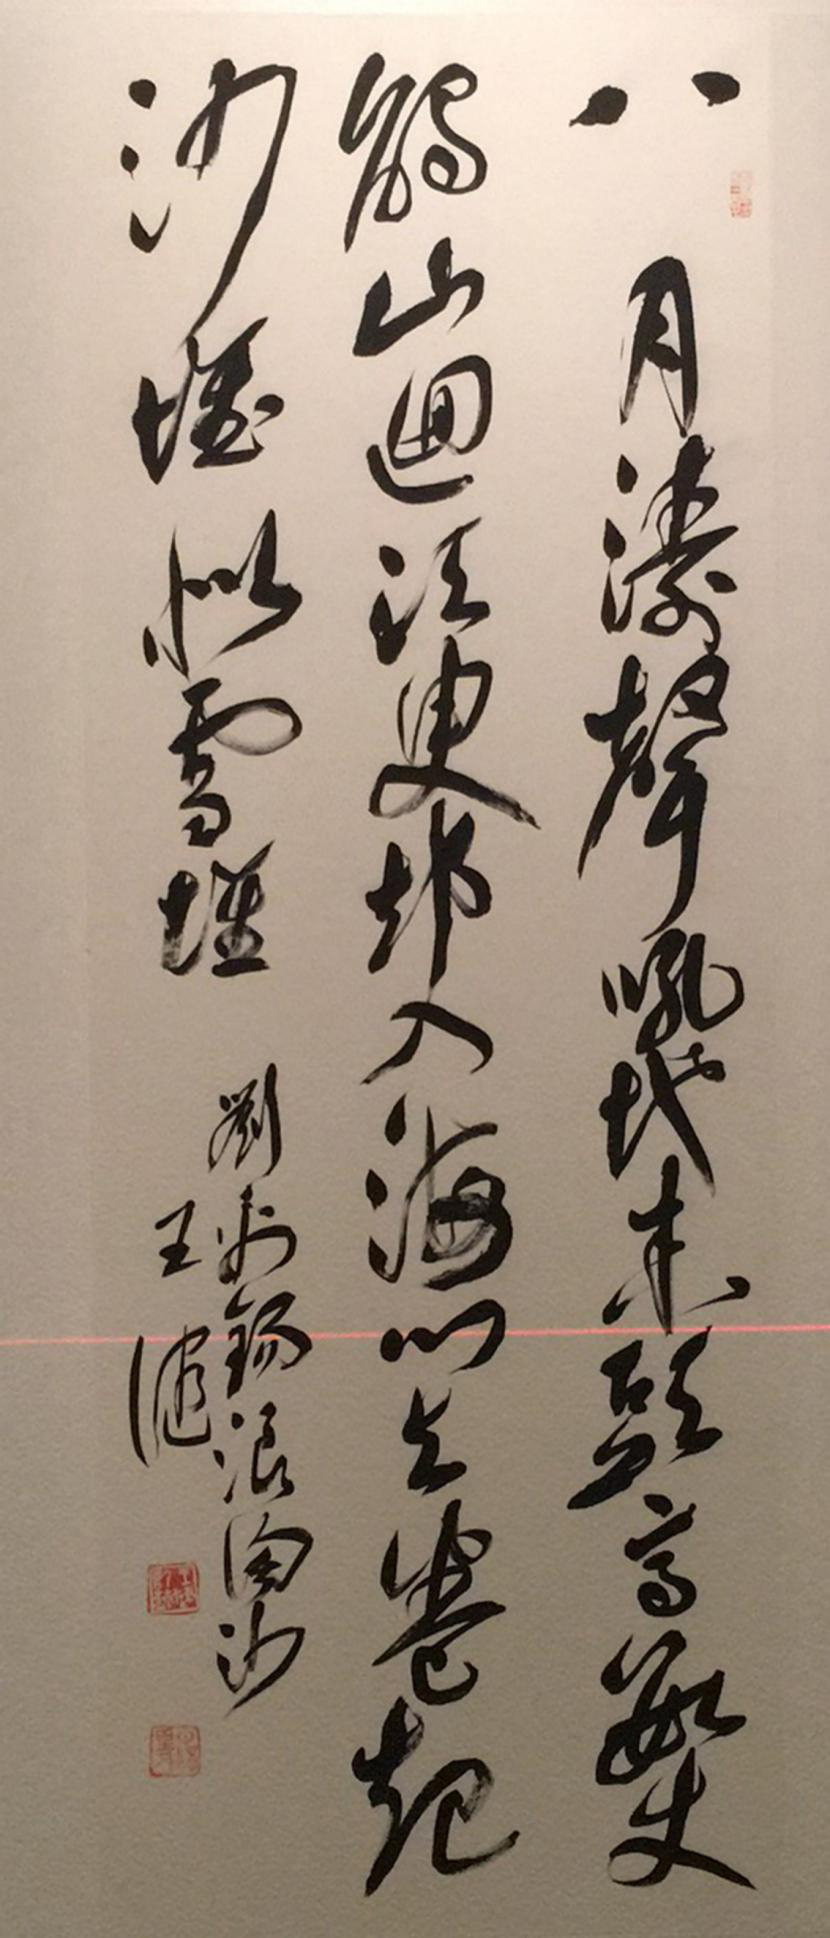 八月濤聲吼地來頭高數丈
觸山迴須臾却入海門去卷起
沙堆似雪堆
劉禹錫浪淘沙
王